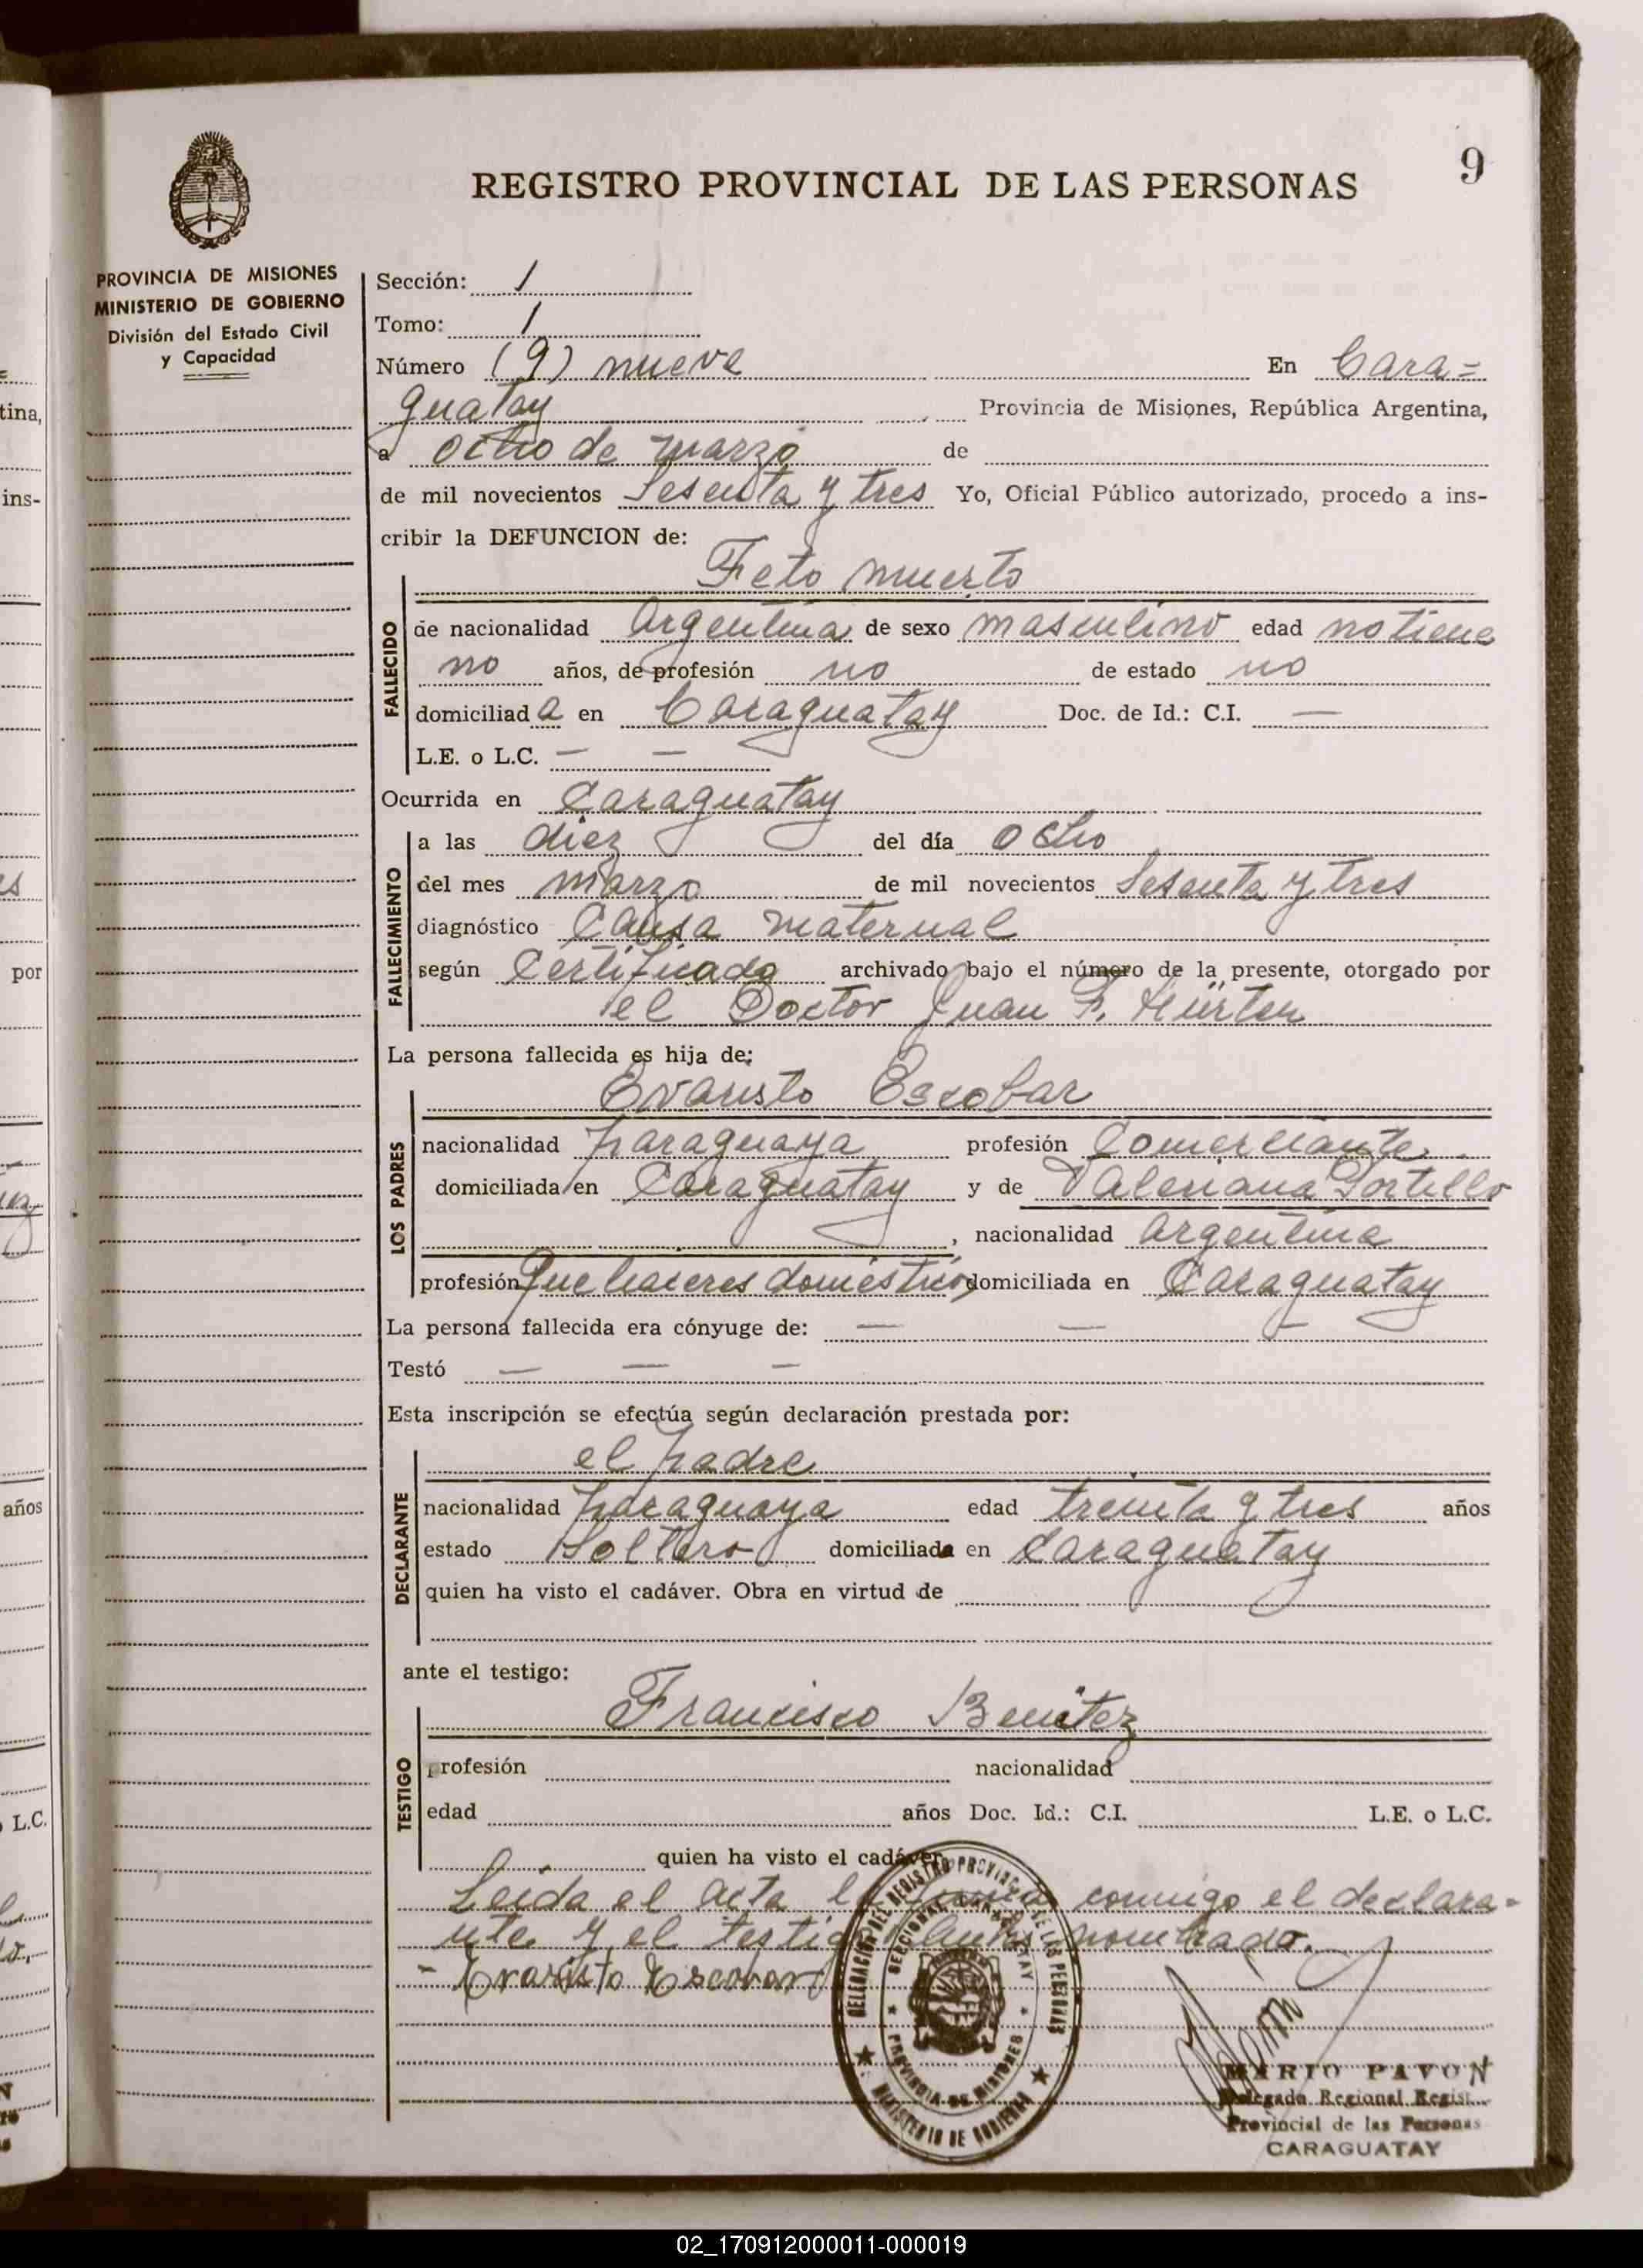 9
REGISTRO PROVINCIAL DE LAS PERSONAS
PROVINCIA DE MISIONES
MINISTERIO DE GOBIERNO
División del Estado Civil
y Capacidad
Sección: 1
Tomo: 1
Número (9) nueve En Cara=
guatay Provincia de Misiones, República Argentina,
a ocho de marzo de
de mil novecientos Sesenta y tres Yo, Oficial Público autorizado, procedo a ins-
cribir la DEFUNCION de:
Feto muerto
FALLECIDO
de nacionalidad Argentina de sexo masculino edad no tiene
no años, de profesión no de estado no
domiciliada en Caraguatay Doc. de Id.: C.I. —
L.E. o L.C. — —
Ocurrida en Caraguatay
FALLECIMIENTO
a las diez del día ocho
del mes marzo de mil novecientos Sesenta y tres
diagnóstico Causa maternal
según Certificado archivado bajo el número de la presente, otorgado por
el Doctor Juan F. Hürter
La persona fallecida es hija de:
Evaristo Escobar
LOS PADRES
nacionalidad paraguaya profesión Comerciante
domiciliada en Caraguatay y de Valeriana Portillo
, nacionalidad argentina
profesión Que haceres domésticos domiciliada en Caraguatay
La persona fallecida era cónyuge de: — — —
Testó — — —
Esta inscripción se efectúa según declaración prestada por:
el padre
DECLARANTE
nacionalidad paraguaya edad treinta y tres años
estado Soltero domiciliada en Caraguatay
quien ha visto el cadáver. Obra en virtud de
ante el testigo:
Francisco Benitez
TESTIGO
profesión nacionalidad
edad años Doc. Id.: C.I. L.E. o L.C.
quien ha visto el cadáver.
Leida el acta la firma conmigo el declara-
nte y el testigo nombrado.
- Evaristo Escovar
DELEGACION DEL REGISTRO PROVINCIAL DE LAS PERSONAS
SECCIONAL CARAGUATAY
PROVINCIA DE MISIONES
MINISTERIO DE GOBIERNO
MARIO PAVON
Delegado Regional Regist.
Provincial de las Personas
CARAGUATAY
tina,
ins-
por
años
L.C.
02_170912000011-000019